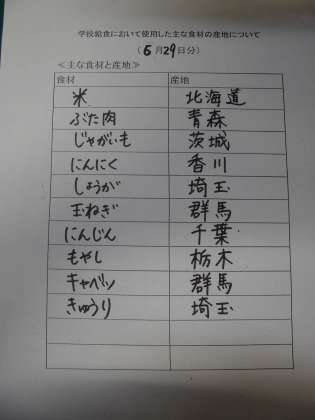 学校給食において使用した主な食材の産地について
(6月29日分)
≪主な食材と産地≫
食材 産地
米 北海道
ぶた肉 青森
じゃがいも 茨城
にんにく 香川
しょうが 埼玉
玉ねぎ 群馬
にんじん 千葉
もやし 栃木
キャベツ 群馬
きゅうり 埼玉